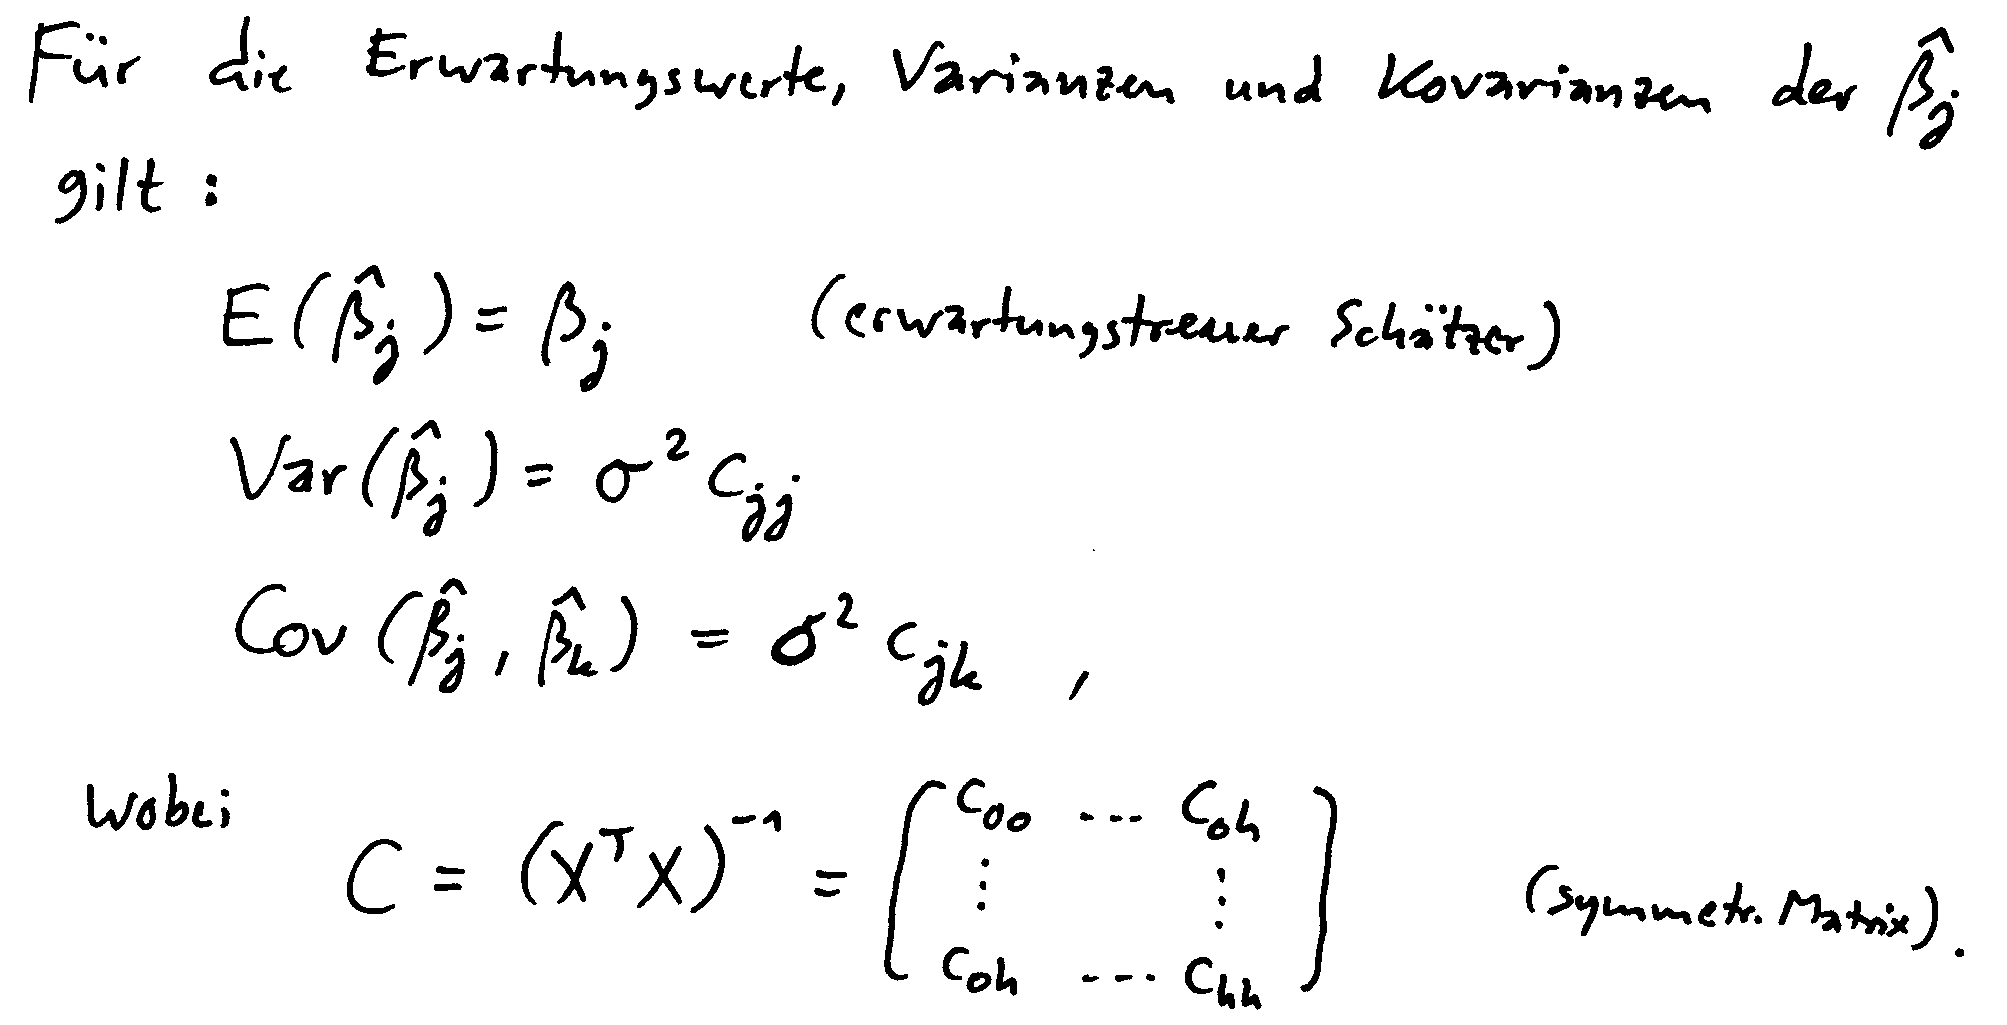 Für die Erwartungswerte, Varianzen und Kovarianzen der β̂_j
gilt :
E(β̂_j) = β_j (erwartungstreuer Schätzer)
Var(β̂_j) = σ² c_jj
Cov(β̂_j, β̂_k) = σ² c_jk ,
wobei
C = (XᵀX)⁻¹ = ( c_00 ... c_0h
⋮ ⋮
c_0h ... c_hh ) (symmetr. Matrix).